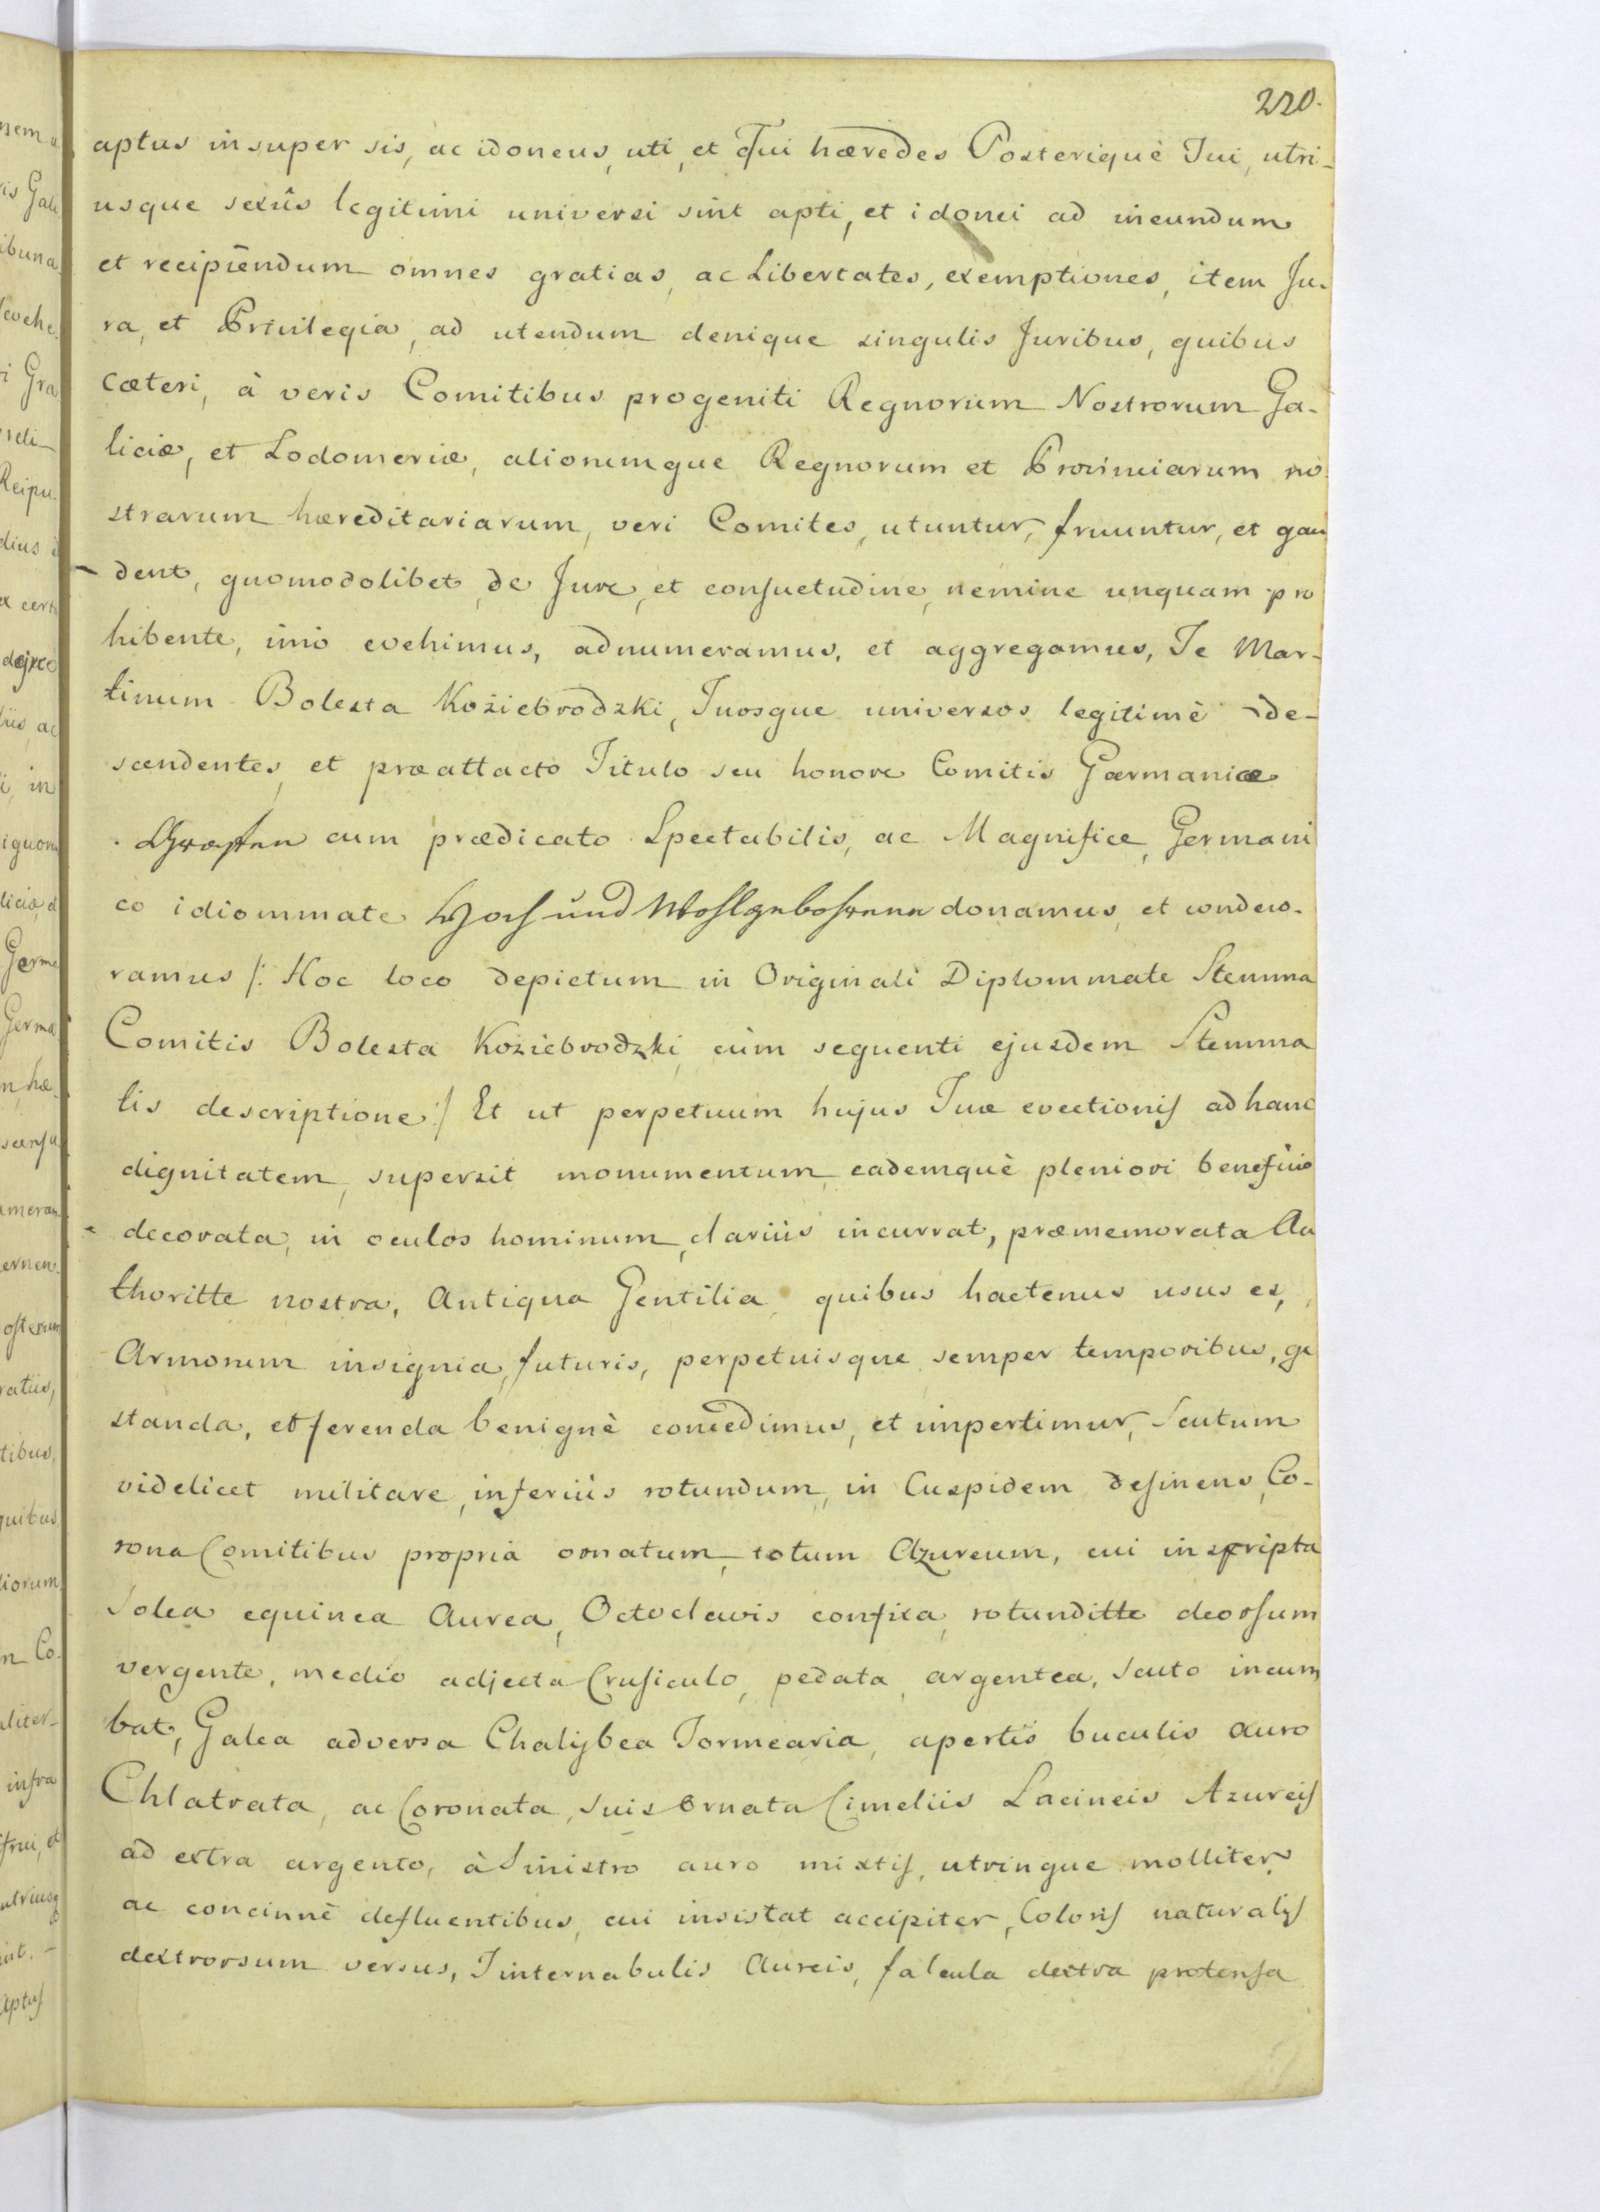 220.
aptus insuper sis, ac idoneus, uti, et Tui hæredes Posterique Tui, utri-
usque sexûs legitimi universi sint apti, et idonei ad ineundum
et recipiendum omnes gratias, ac Libertates, exemptiones, item Ju-
ra, et Privilegia, ad utendum denique singulis Juribus, quibus
cæteri, à veris Comitibus progeniti Regnorum Nostrorum Ga-
liciæ, et Lodomeriæ, aliorumque Regnorum et Provinciarum no-
strarum hæreditariarum, veri Comites, utuntur, fruuntur, et gau
dent, quomodolibet de Jure, et consuetudine, nemine unquam pro
hibente, imo evehimus, adnumeramus, et aggregamus, Te Mar-
tinum Bolesta Koziebrodzki, Tuosque universos legitimè de-
scendentes, et præattacto Titulo seu honore Comitis Germaniæ
Græffen cum prædicato Spectabilis, ac Magnifice, Germani
co idiommate Hoch und Wohlgebohrenn donamus, et condeco-
ramus /: Hoc loco depictum in Originali Diplommate Stemma
Comitis Bolesta Koziebrodzki, cum sequenti ejusdem Stemma
tis descriptione :/ Et ut perpetuum hujus Tuæ evectionis ad hanc
dignitatem, supersit monumentum, eademquè pleniori beneficio
decorata, in oculos hominum, clariùs incurrat, præmemorata Au
thoritte nostra, Antiqua Gentilia quibus hactenus usus es,
Armorum insignia, futuris, perpetuisque semper temporibus, ge
standa, et ferenda benignè concedimus, et impertimur, Scutum
videlicet militare, inferiùs rotundum, in Cuspidem desinens, Co-
rona Comitibus propria ornatum, totum Azureum, cui inscripta
Solea equinea Aurea, Octoclavis confixa, rotunditte deorsum
vergente, medio adjecta Crusiculo, pedata, argentea, Scuto incum
bat, Galea adversa Chalybea Tornearia, apertis buculis auro
Chlatrata, ac Coronata, suis Ornata Cimeliis Lacineis Azureis
ad extra argento, à Sinistro auro mixtis, utrinque molliter,
ac concinnè defluentibus, cui insistat accipiter, Coloris naturalis
dextrorsum versus, Tinternabulis Aureis, falcula dextra protensa